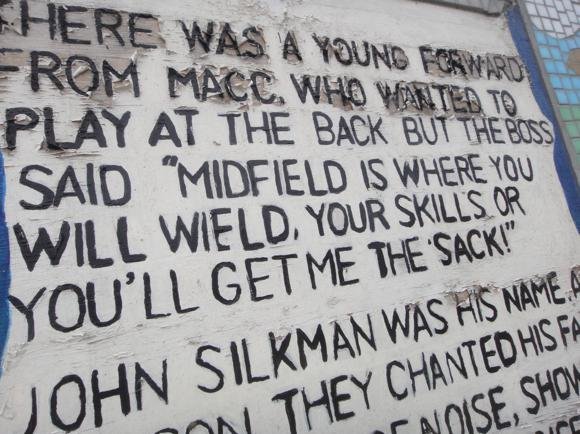 HERE WAS A YOUNG FORWARD
FROM MACC, WHO WANTED TO
PLAY AT THE BACK BUT THE BOSS
SAID "MIDFIELD IS WHERE YOU
WILL WIELD, YOUR SKILLS OR
YOU'LL GET ME THE 'SACK!"
JOHN SILKMAN WAS HIS NAME
THEY CHANTED HIS
NOISE,